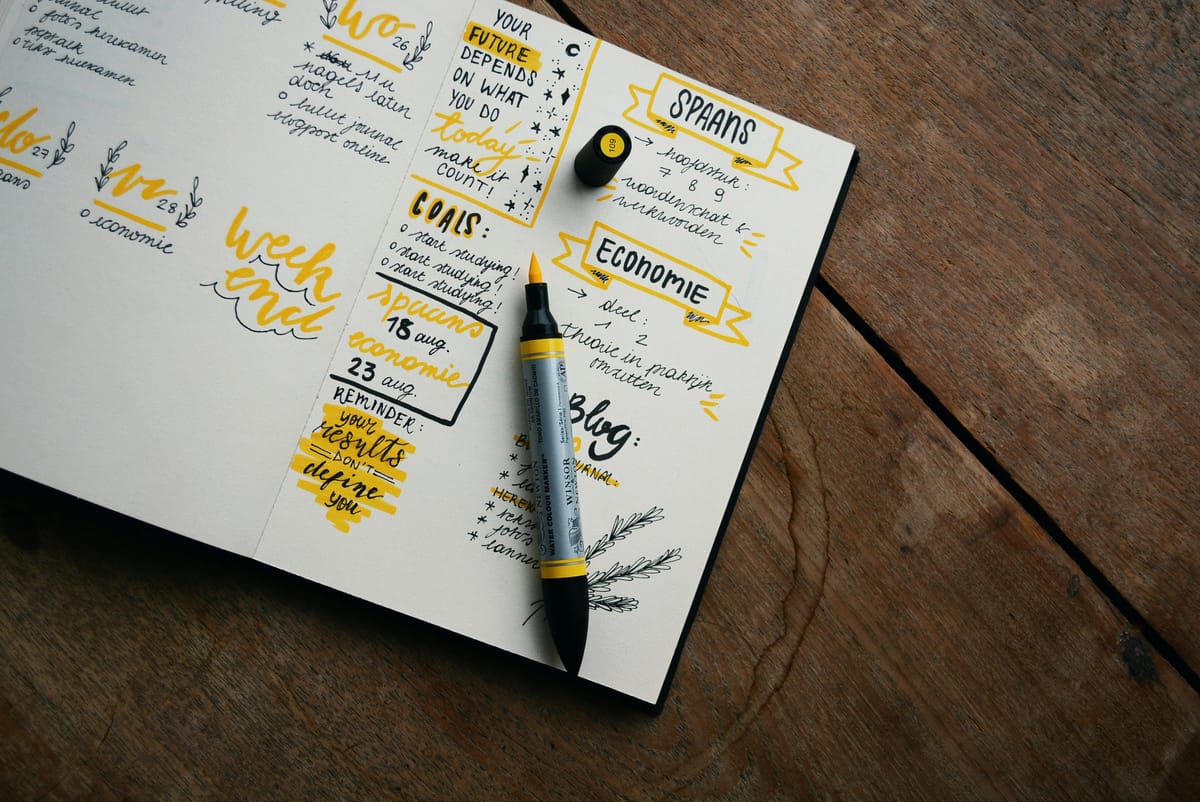 o foto's herexamen
o tekst herexamen
wo 26
* 11u
nagels laten
doen
o bullet journal
blogpost online
do 27
vr 28
o economie
week
end
YOUR
FUTURE
DEPENDS
ON WHAT
YOU DO
today
make it
COUNT!
GOALS:
o start studying!
o start studying!
o start studying!
spaans
18 aug.
economie
23 aug.
REMINDER:
your
results
DON'T
define
you
109
SPAANS
→ hoofdstuk:
7 8 9
woordenschat &
werkwoorden
ECONOMIE
→ deel:
1 2
theorie in praktijk
omzetten
Blog:
JOURNAL:
HEREX
* tekst
* foto's
* lannen
WINSOR
NEWTON
WATER COLOUR MARKER™